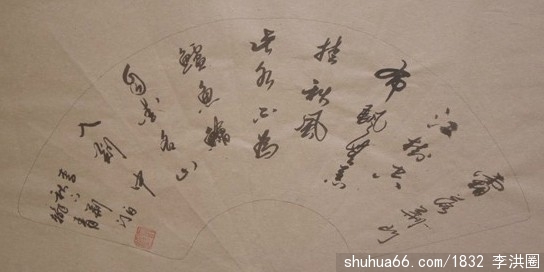 霜落荆门
江树空
布帆無恙
挂秋風
此行不为
鱸魚鱠
自爱名山
入剡中
shuhua66.com/1832 李洪圈